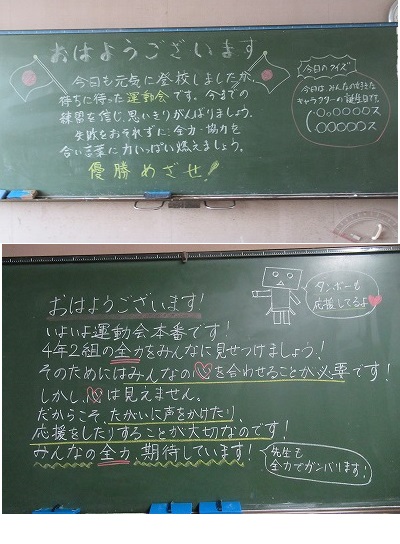 おはようございます
今日も元気に登校しましたか。
待ちに待った運動会です。今までの
練習を信じ、思いきりがんばりましょう。
失敗をおそれずに、全力・協力を
合い言葉に力いっぱい燃えましょう。
優勝めざせ!
今日のクイズ
今日は、みんなの好きな
キャラクターの誕生日です。
おはようございます!
いよいよ運動会本番です!
4年2組の全力をみんなに見せつけましょう!
そのためにはみんなの心を合わせることが必要です!
しかし、心は見えません。
だからこそ、たがいに声をかけたり、
応援をしたりすることが大切なのです!
みんなの全力、期待しています!
ダンボーも
応援してるよ
先生も
全力でガンバリます!